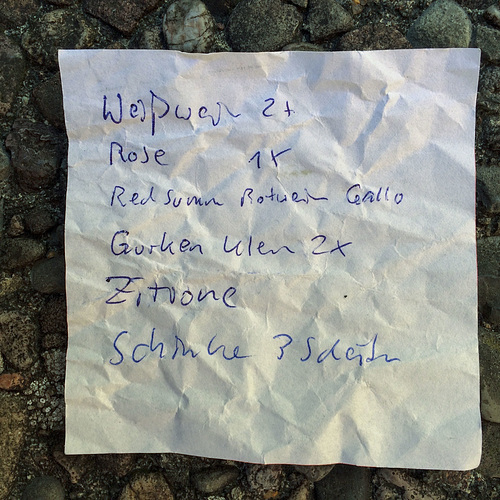 Weißwein 2x
Rose 1x
Red Summ Rotwein Gallo
Gurken klein 2x
Zitrone
Schinke 3 Scheiben